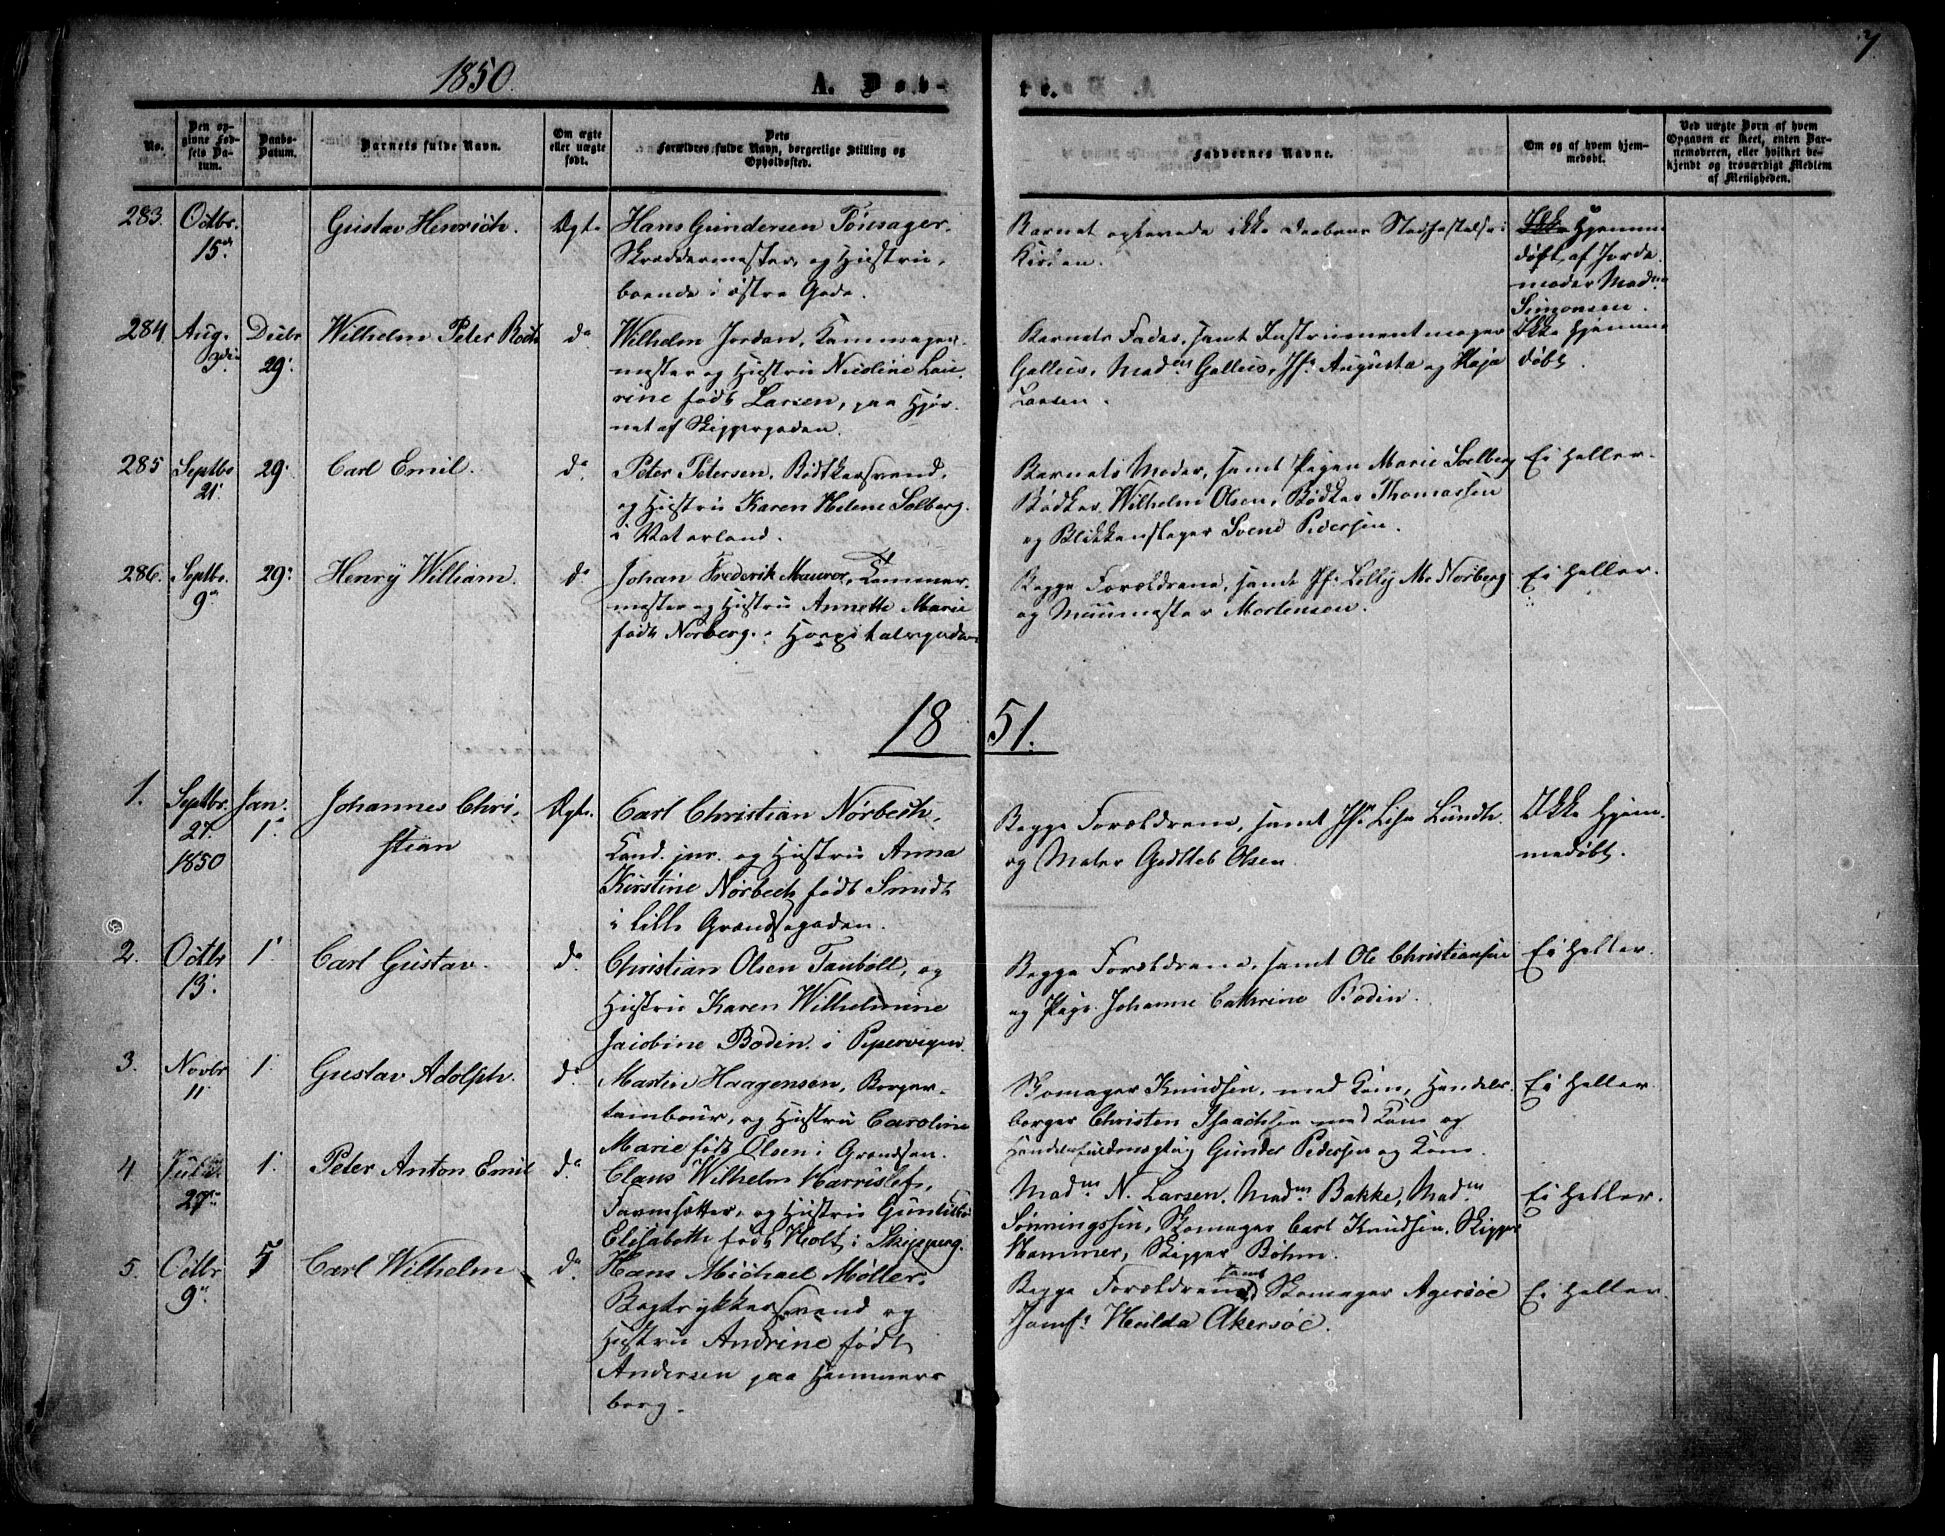 7.
1850.
A. Døb-
te.
No.
Den op-
givne Fød-
sels Da-
tum.
Daabs-
Datum.
Barnets fulde Navn.
Om ægte
eller uægte
født.
Dets
Forældres fulde Navn, borgerlige Stilling og
Opholdssted.
Faddernes Navne.
Om og af hvem hjem-
medøbt.
Ved uægte Børn af hvem
Opgaven er skeet, enten Bar-
nemoderen, eller hvilket be-
kjendt og troværdigt Medlem
af Menigheden.
283.
Octbr.
15de
Gustav Henrich.
Ægte
Hans Gundersen Tønsager,
Skræddermester, og Hustru,
boende i østre Gade.
Barnet oplevede ikke Daabens Stadfæstelse i
Kirken.
Ikke Hjemme
døbt, af Jorde
moder Madm
Simonsen.
284.
Aug.
Decbr
29.
Wilhelm Peter
do
Wilhelm Jordan, Kammager-
mester og Hustru Nicoline Lau-
rine født Larsen, paa Hjør-
net af Skippergaden.
Barnets Fader, samt Instrumentmager
Gallus, Madm Gallus, Jfr Augusta og Maja
Larsen.
Ikke Hjemme
døbt.
285
Septbr
21.
29.
Carl Emil.
do
Peter Petersen, Bødtkersvend,
og Hustru Karen Helene Solberg.
i Vaterland.
Barnets Moder, samt Pigen Marie Solberg
Bødker Wilhelm Olsen, Bødker Thomassen
og Blikkenslager Svend Pedersen.
Ei heller.
286.
Septbr.
9de
29.
Henry William.
do
Johan Frederik Maurer,
mester og Hustru Annette Marie
født Norberg. i Hospitalsgaden
Begge Forældrene, samt Jfr Lolly Me Norberg
og Muurmester Mortensen.
Ei heller.
1851.
1.
Septbr.
27.
1850
Jan.
1.
Johannes Chri-
stian
Ægte.
Carl Christian Nørbech,
Cand. jur. og Hustru Anna
Kirstine Nørbech født Smidt
i lille Grændsegaden.
Begge Forældrene, samt Jfr Lise Lundh.
og Maler Gottlieb Olsen.
Ikke Hjem-
medøbt.
2.
Octbr
13.
1.
Carl Gustav.
do
Christian Olsen Taubøll, og
Hustru Karen Wilhelmine
Jacobine Bodin. i Pipervigen.
Begge Forældrene, samt Ole Christiansen
og Pige Johanne Cathrine Bodin.
Ei heller.
3.
Novbr
11
1.
Gustav Adolph.
do
Martin Haagensen, Borger-
tambour, og Hustru Caroline
Marie født Olsen i Grændsen.
Skomager Knudsen, med Kone, Handels-
borger Christen Isaachsen med Kone og
Gunder Pedersen og Kone.
Ei heller.
4.
27de
1.
Peter Anton Emil
do
Claus Wilhelm Harrisleff,
og Hustru
Elisabeth født Holt i Skipperg.
Madm N. Larsen, Madm Bakke, Madm
Sønningssen, Skomager Carl Knudsen, Skipper
Hammer, Skipper Bøhm.
Ei heller.
5.
Octbr
9de
5
Carl Wilhelm
do
Hans Michael Møller,
Bogtrykkersvend og
Hustru Andrine født
Andersen paa Hammers
borg.
Begge Forældrene samt Skomager Agersøe
Jomfr Hulda Akersøe.
Ei heller.